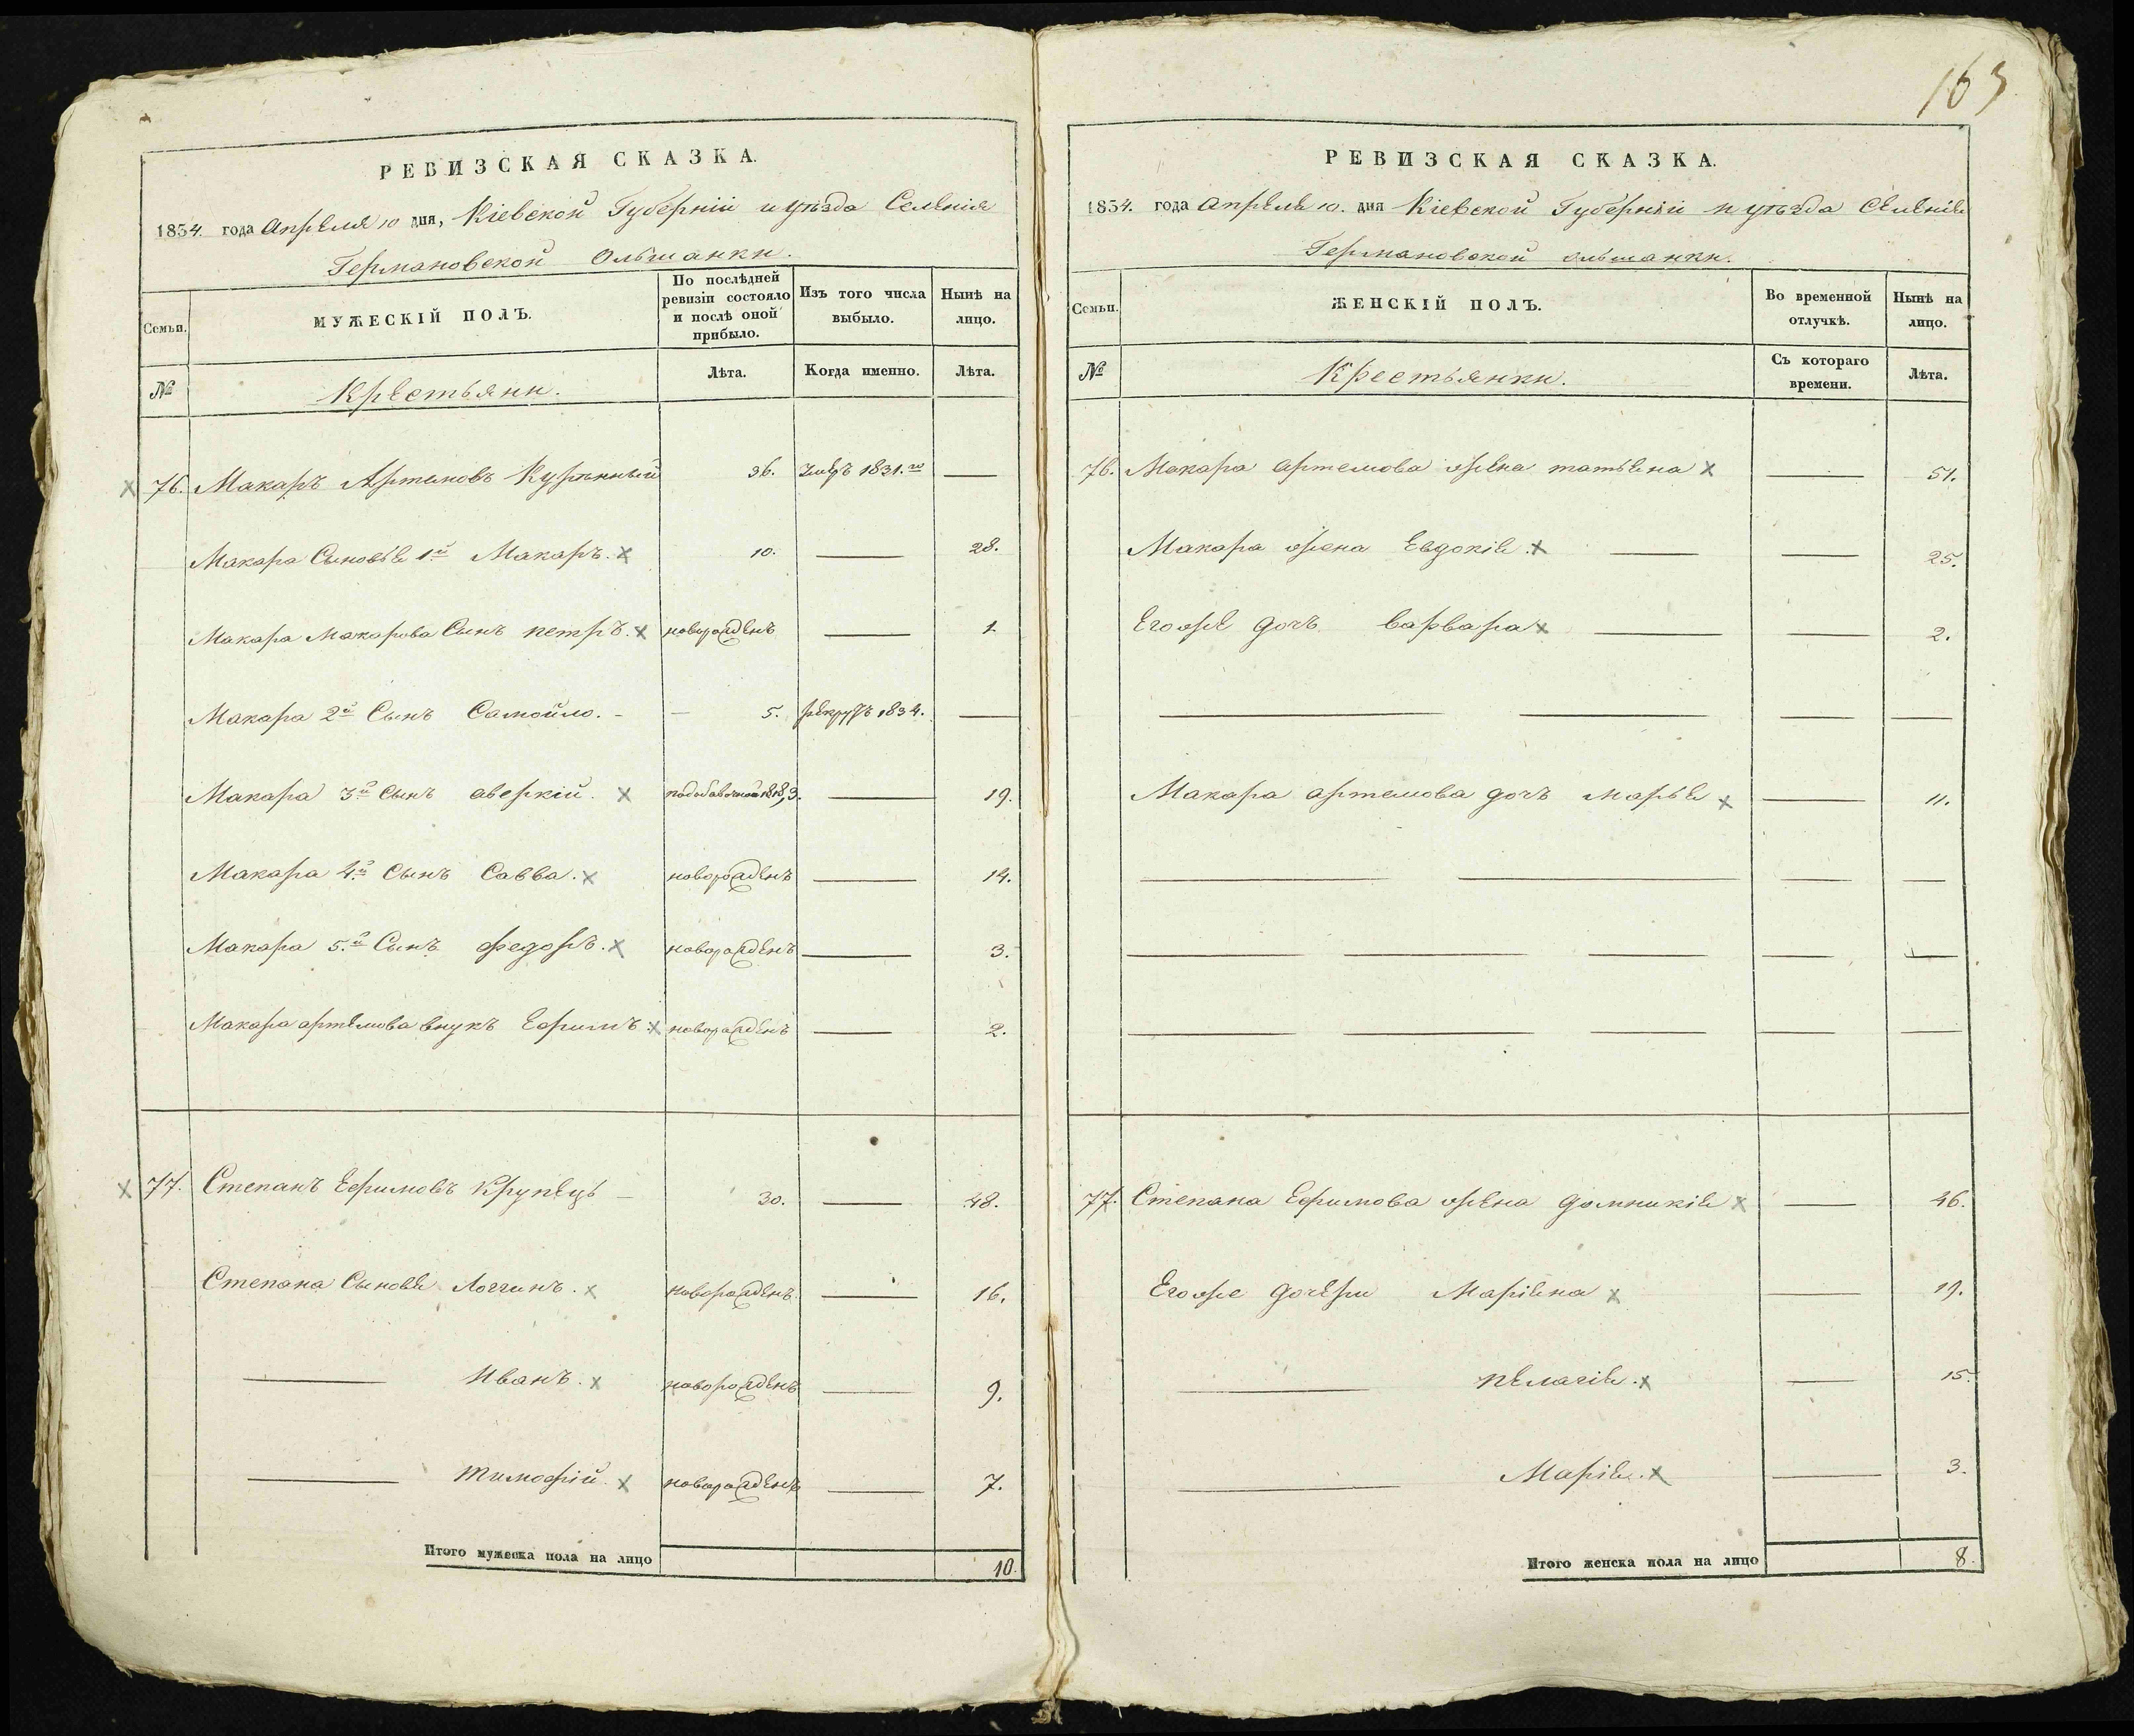 163
РЕВИЗСКАЯ СКАЗКА.
1834. года Апреля 10 дня, Кіевской Губерніи и уѣзда Селенія
Германовской Ольшанки.
Семьи.
МУЖЕСКІЙ ПОЛЪ.
По послѣдней ревизіи состояло и послѣ оной прибыло.
Изъ того числа выбыло.
Нынѣ на лицо.
№
Крестьяни.
Лѣта.
Когда именно.
Лѣта.
76. Макаръ Артемовъ Курѣнный 36. умеръ 1831.го —
Макара Сыновья 1й Макаръ. 10. — 28.
Макара Макарова Сынъ петръ. новорожденъ — 1.
Макара 2й Сынъ Самойло. 5. рекрутъ 1834. —
Макара 3й Сынъ аверкій. 1818, 3. — 19.
Макара 4й Сынъ Савва. новорожденъ — 14.
Макара 5.й Сынъ федоръ. новорожденъ — 3.
Макара артемова внукъ Ефимъ новорожденъ — 2.
77. Степанъ Ефимовъ Крупець 30. — 48.
Степана Сыновья Логгинъ. новорожденъ. — 16.
— Иванъ. новорожденъ — 9.
— Тимофій. новорожденъ — 7.
Итого мужеска пола на лицо 10.
РЕВИЗСКАЯ СКАЗКА.
1834. года Апреля 10. дня Кіевской Губерніи и уѣзда Селенія
Германовской ольшанки.
Семьи.
ЖЕНСКІЙ ПОЛЪ.
Во временной отлучкѣ.
Нынѣ на лицо.
№
Крестьянки.
Съ котораго времени.
Лѣта.
76. Макара артемова жена татьяна — 51.
Макара жена Евдокія. — — 25.
Егоже дочъ варвара — — 2.
Макара артемова дочъ марья — 11.
77. Степана Ефимова жена домникія — 46.
Егоже дочери Маріяна — 19.
— пелагія. — 15.
— Марія. — 3.
Итого женска пола на лицо 8.